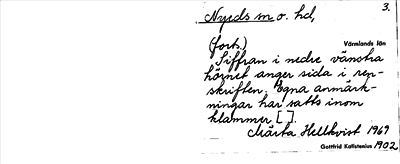 Nyeds sn o. hd,
3.
(forts.)
Värmlands län
Siffran i nedre vänstra
hörnet anger sida i ren-
skriften. Egna anmärk-
ningar har satts inom
klammer [ ].
Märta Hellkvist 1969
Gottfrid Kallstenius 1902